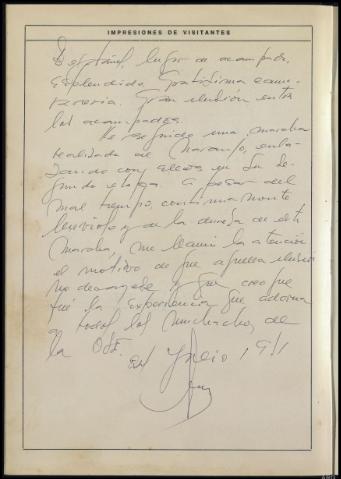 IMPRESIONES DE VISITANTES
lugar de acampada,
esplendido. Gratisima cama-
raderia. Gran ilusión entre
los acampados.
He seguido una marcha
realizada de Naranjo, enla-
zando con ellos en su se-
gunda etapa. A pesar del
mal tiempo, continuamente
lluvioso y de la dureza de esta
marcha, me llamó la atención
el motivo de que aquella ilusión
no decayese y que creo que
fué la experiencia que adorna
a todos los muchachos de
la OJE.
Julio 1971